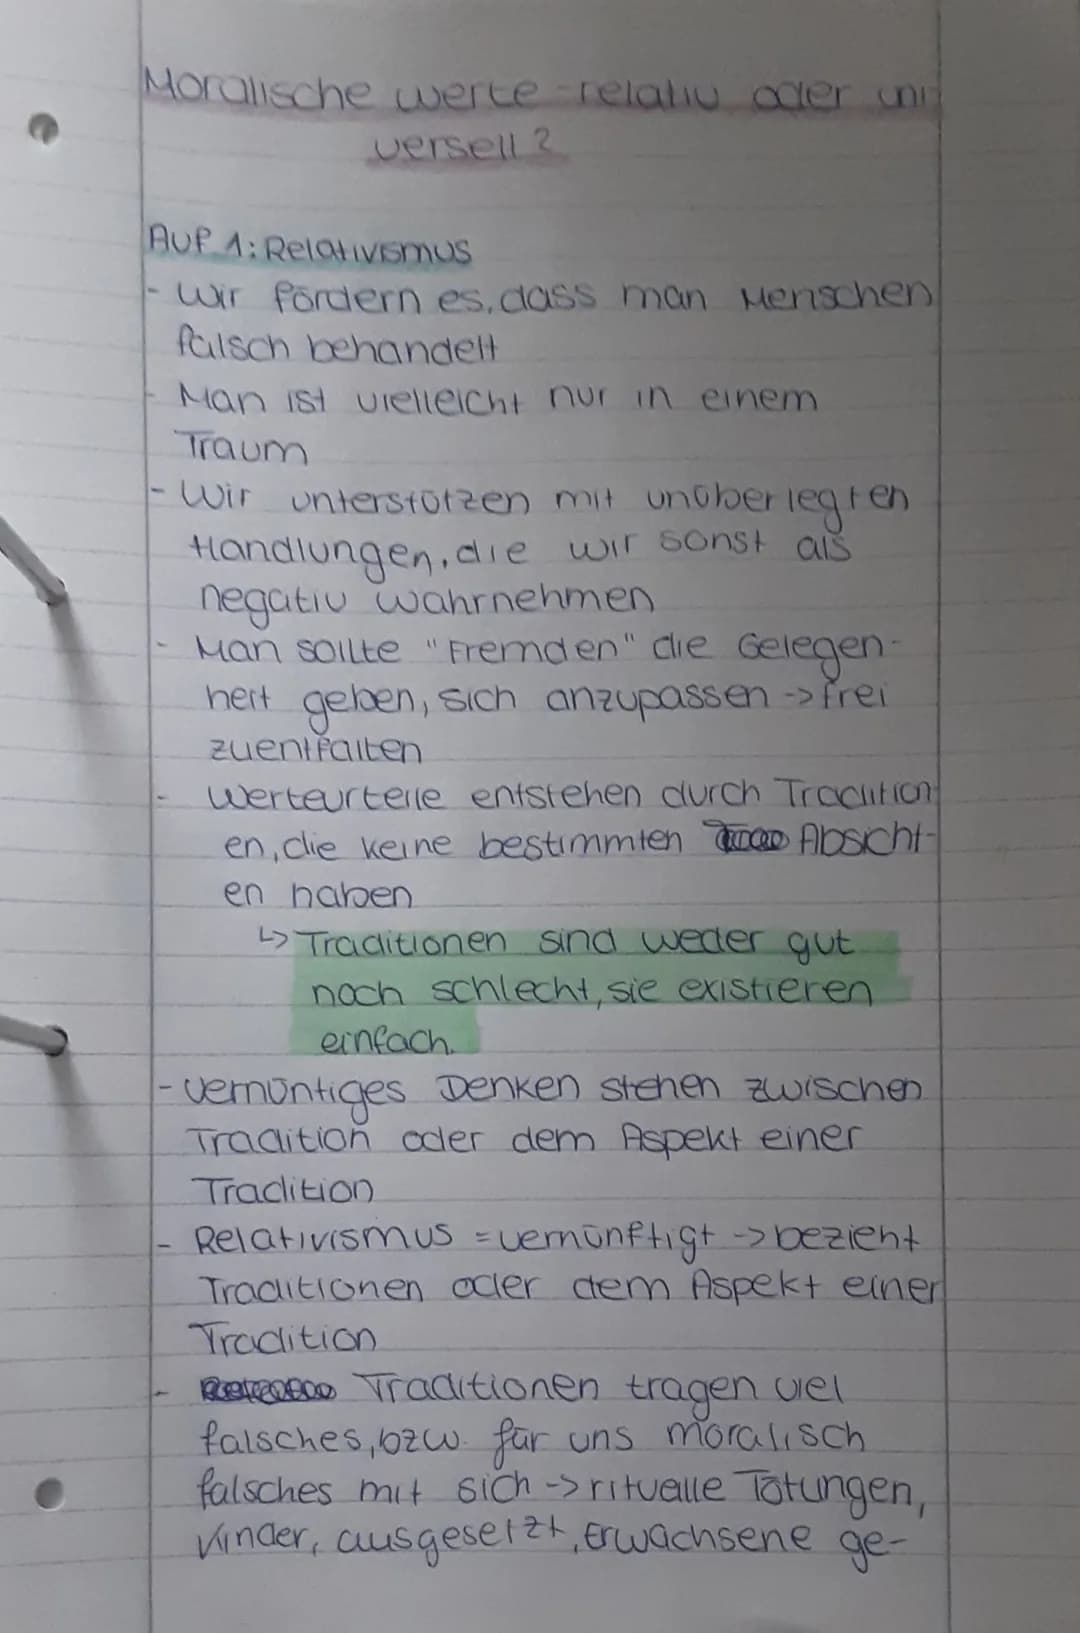 Moralische werte - relativ oder uni
versell?
Auf 1: Relativismus
- Wir fördern es, dass man Menschen
falsch behandelt
- Man ist vielleicht nur in einem
Traum
- Wir unterstützen mit unüberlegten
Handlungen, die wir sonst als
negativ wahrnehmen
- Man sollte "Fremden" die Gelegen-
heit geben, sich anzupassen -> frei
zuentfalten
- Werteurteile entstehen durch Tradition
en, die keine bestimmten Absicht-
en haben
↳ Traditionen sind weder gut
noch schlecht, sie existieren
einfach.
- vernüntiges Denken stehen zwischen
Tradition oder dem Aspekt einer
Tradition
- Relativismus = vernünftigt -> bezieht
Traditionen oder dem Aspekt einer
Tradition
- Traditionen tragen viel
falsches, bzw. für uns moralisch
falsches mit sich -> rituelle Tötungen,
Kinder, ausgesetzt, Erwachsene ge-